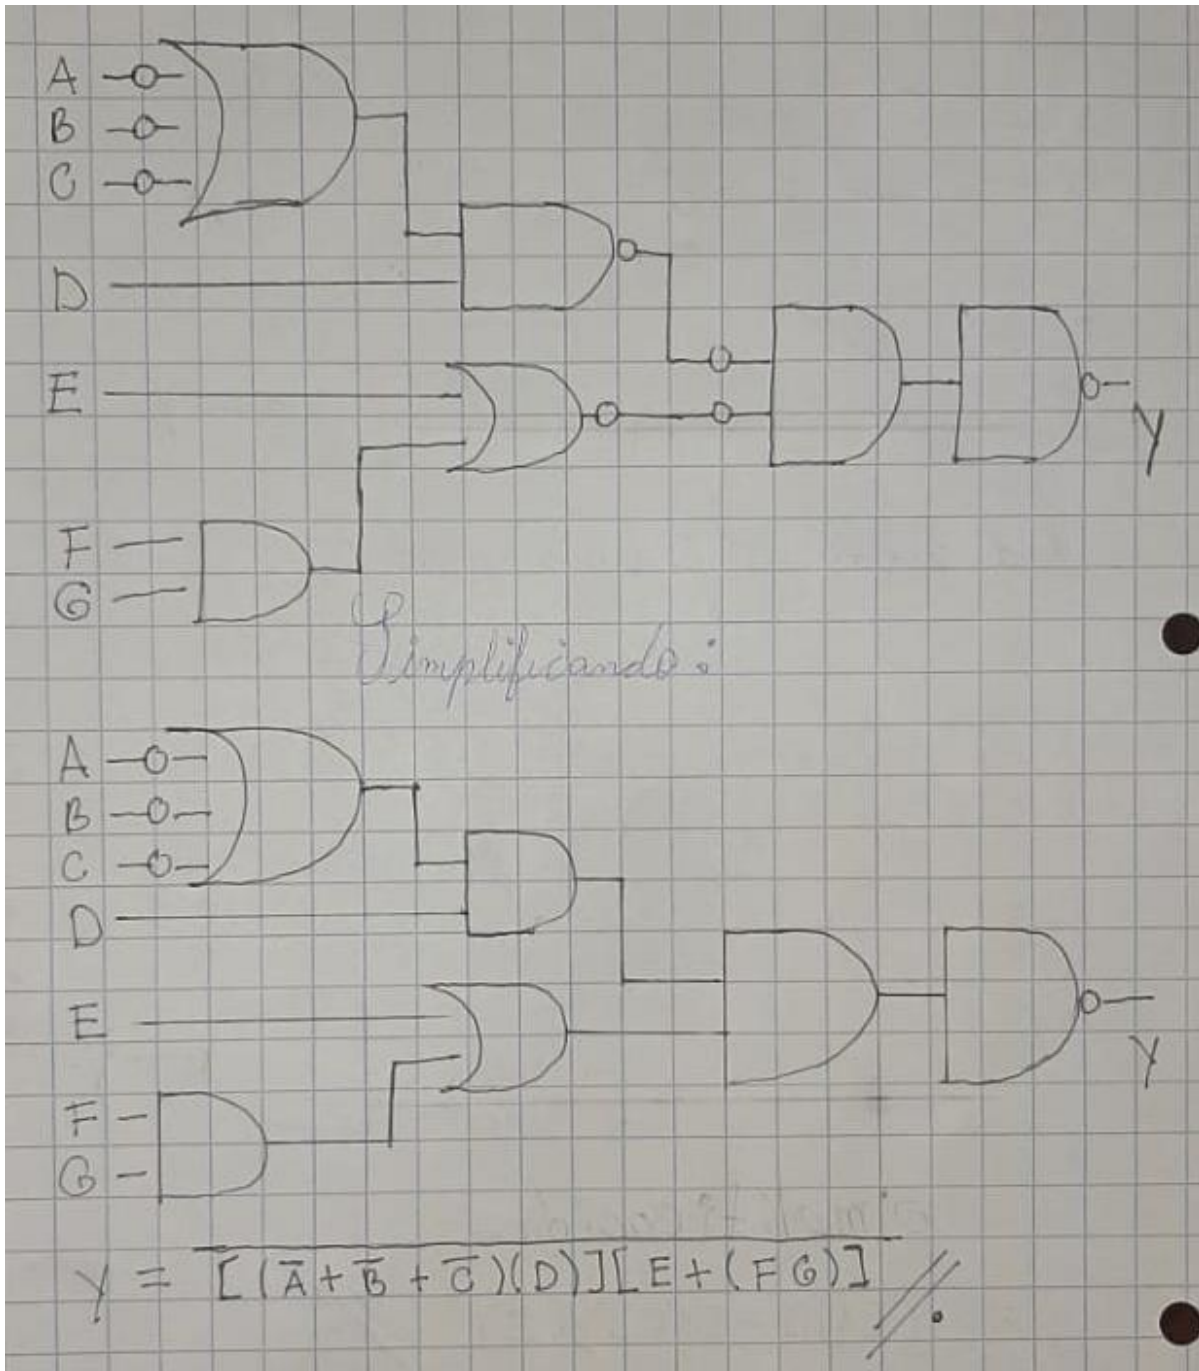 A
B
C
D
E
Y
F
G
Simplificando:
A
B
C
D
E
Y
F
G
Y = \overline{[(A̅ + B̅ + C̅)(D)][E + (FG)]} //.